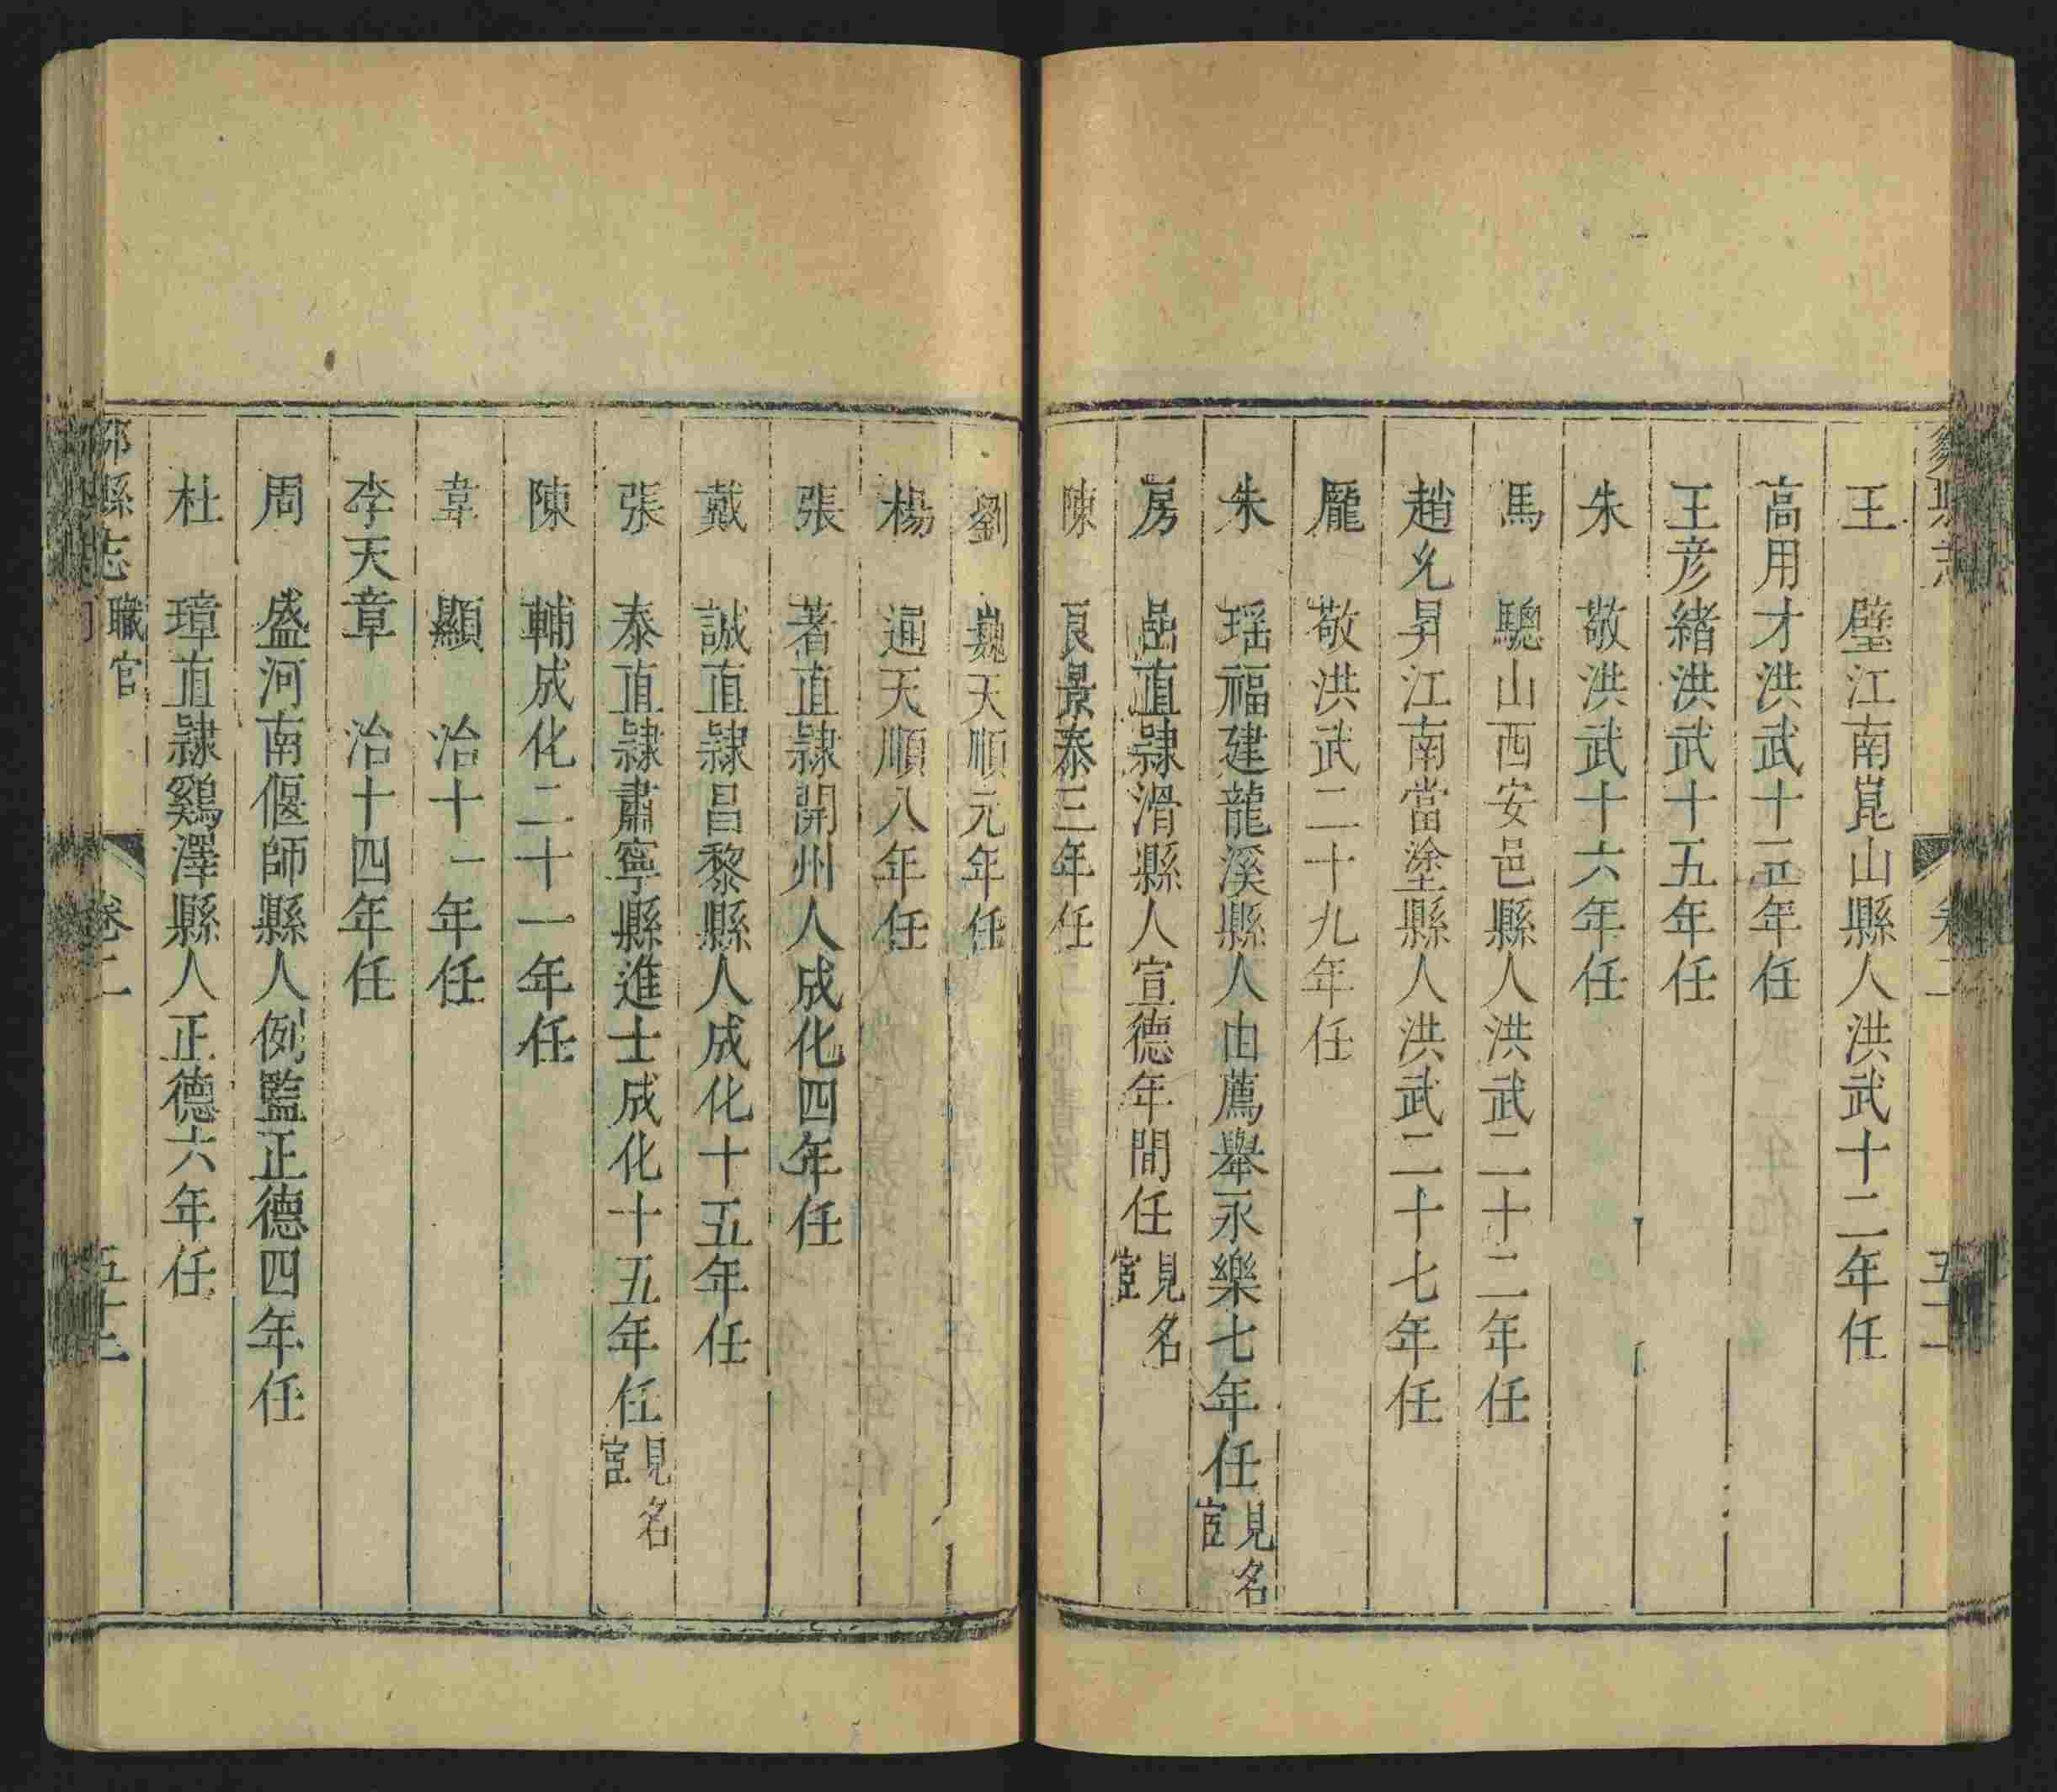 志
卷二
王 璧江南崑山縣人洪武十二年任
高用才洪武十三年任
王彦緒洪武十五年任
朱 敬洪武十六年任
馬 驄山西安邑縣人洪武二十二年任
趙允昇江南當塗縣人洪武二十七年任
龎 敬洪武二十九年任
朱 瑶福建龍溪縣人由薦舉永樂七年任見名宦
房 嵒直隷滑縣人宣德年間任見名宦
陳 良景泰三年任
劉 巍天順元年任
楊 通天順八年任
張 著直隷開州人成化四年任
戴 誠直隷昌黎縣人成化十五年任
張 泰直隷肅寧縣進士成化十五年任見名宦
陳 輔成化二十一年任
韋 顯 治十一年任
李天章 治十四年任
周 盛河南偃師縣人例監正德四年任
杜 璋直隷鷄澤縣人正德六年任
縣志 職官 卷二